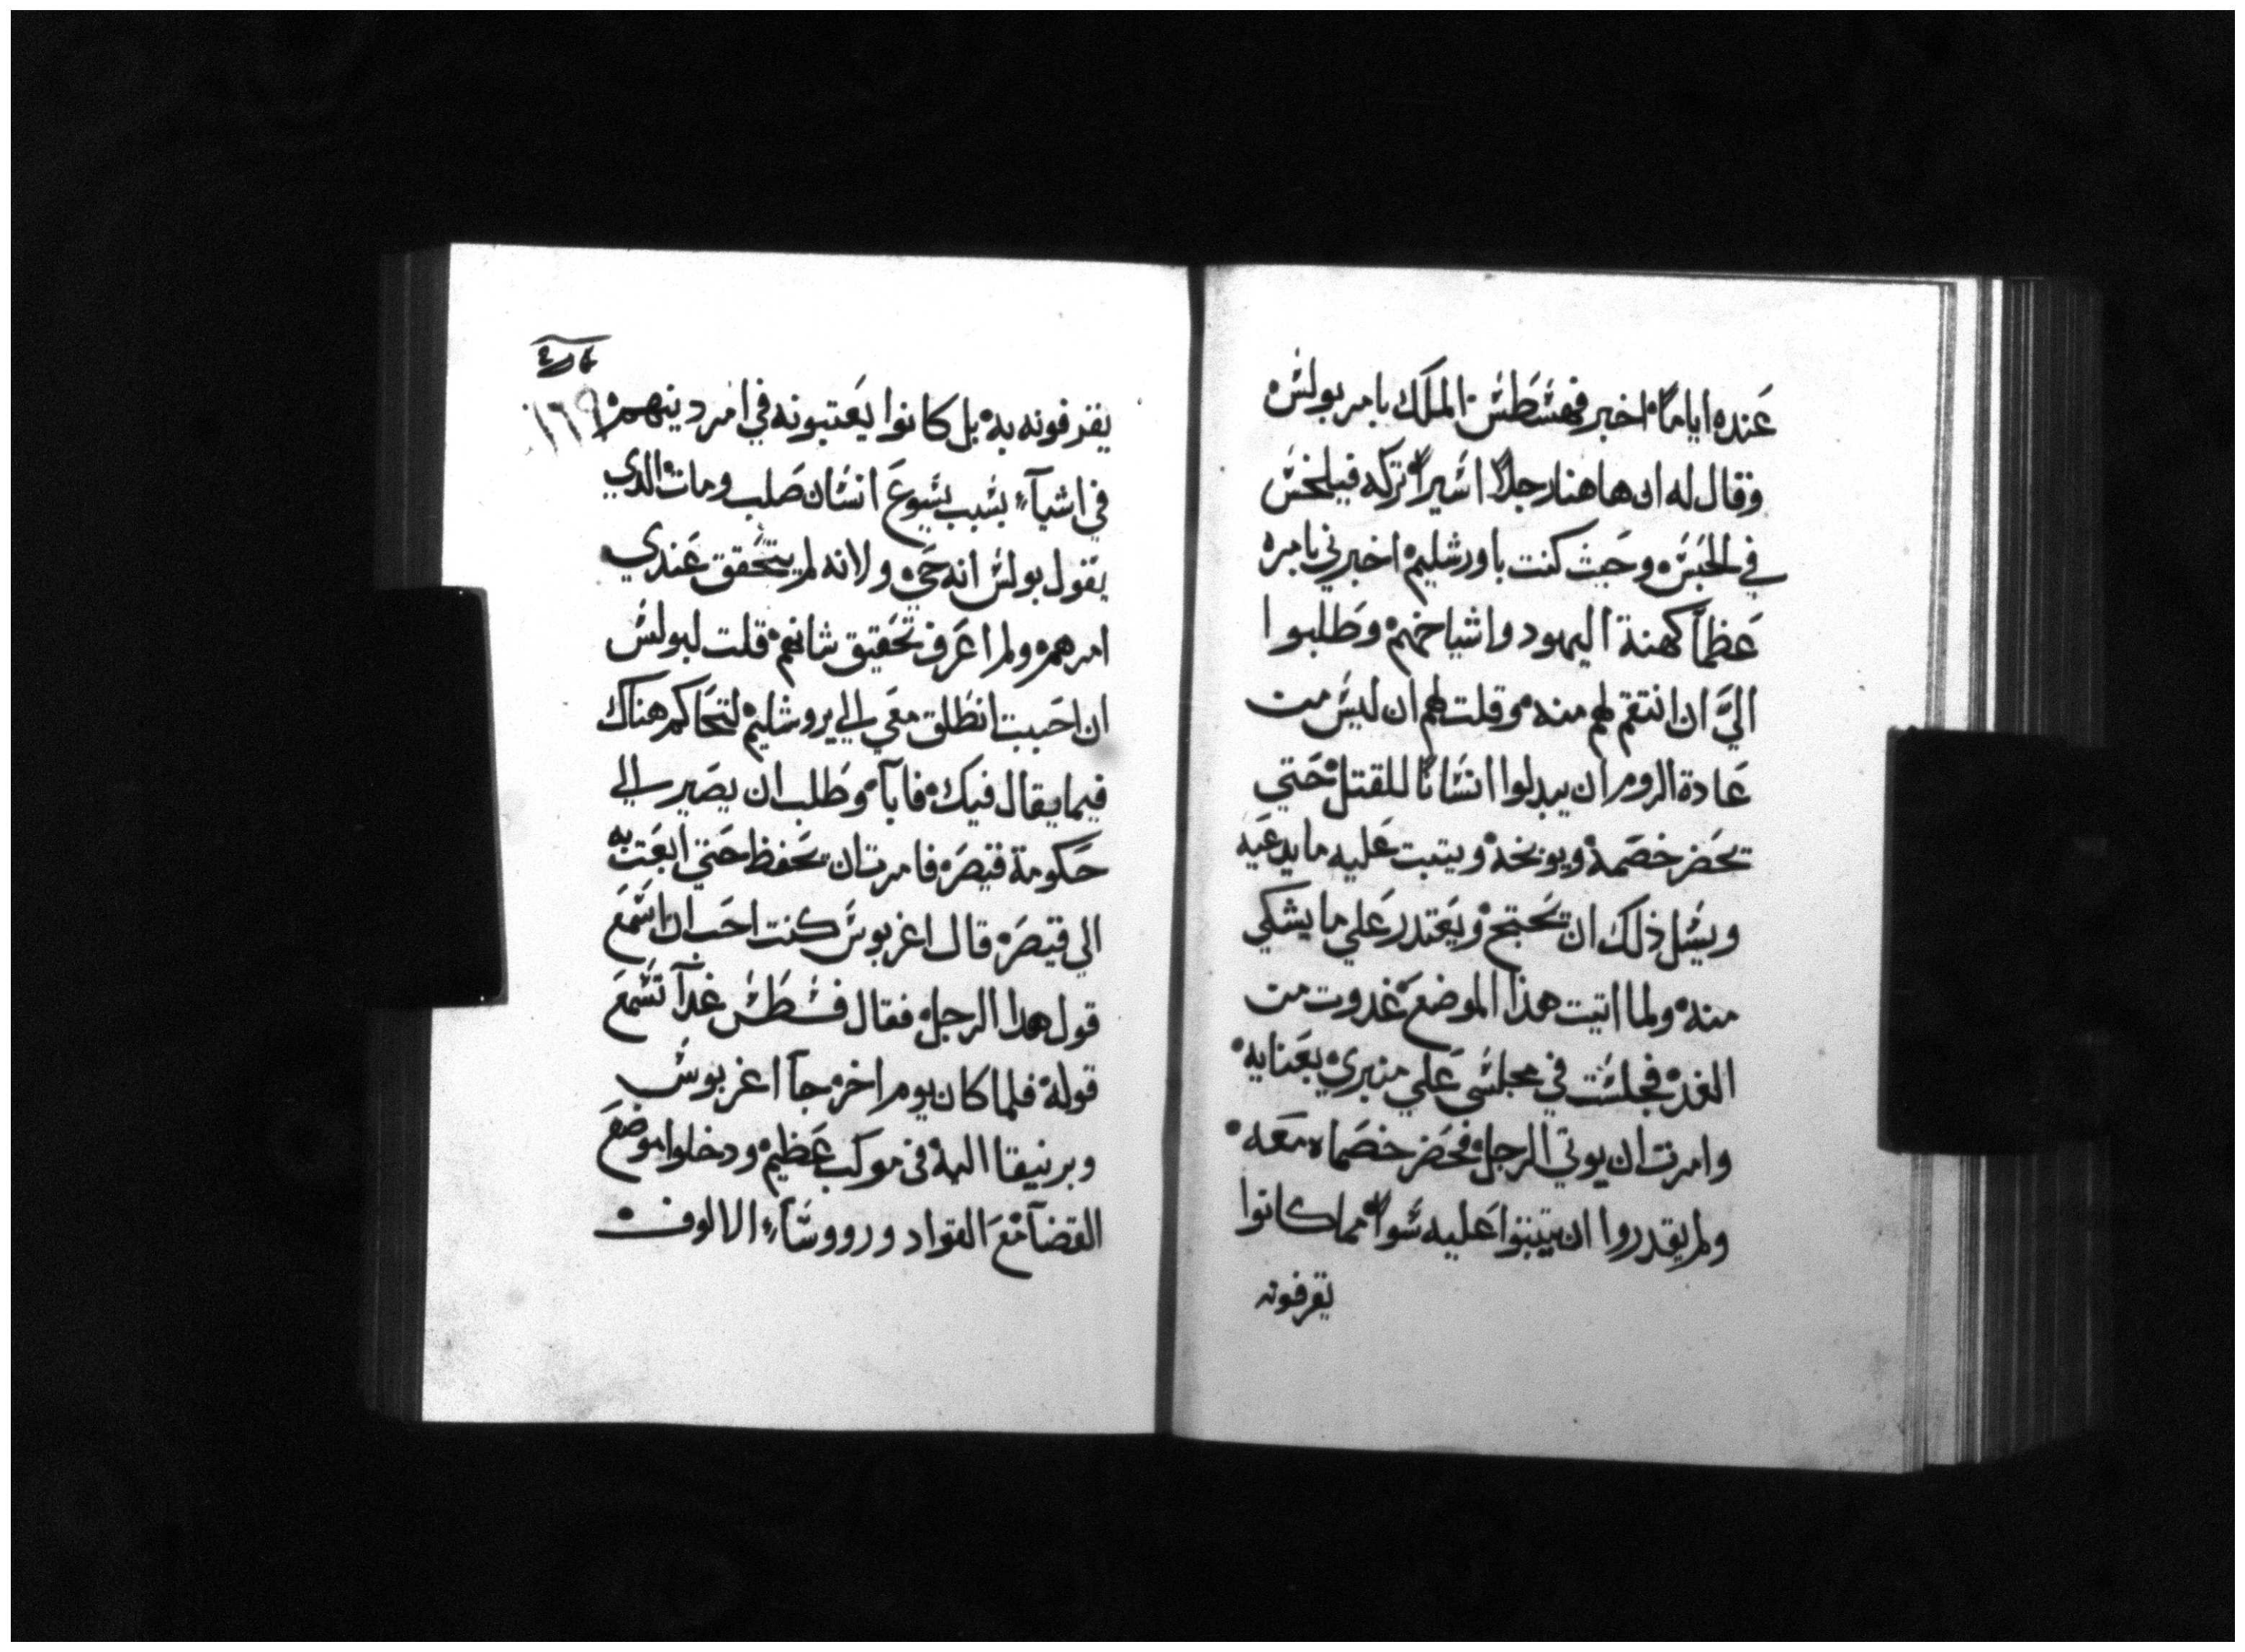 عنده اياما اخبر فهشطش الملك بامر بولش
وقال له ان هاهنا رجلا اشيرا تركه فيلخش
في الحبش وحيث كنت باورشليم اخبرني بامره
عظمآ كهنة اليهود واشياخهم وطلبوا
اليَّ ان انتقم لهم منه وقلت لهم ان ليش من
عادة الروم ان يبدلوا انشانا للقتل حتي
يحضر خصمه ويوبخه ويتبت عليه ما يدعيه
ويشل ذلك ان يحتج ويعتدر علي ما يشكي
منه ولما اتيت هذا الموضع غدوت من
الغد فجلشت في مجلشي علي منبري بعنايه
وامرت ان يوتي الرجل فحضر خصماه معه
ولم يقدروا ان يتبتوا عليه شوا مما كانوا
يقرفونه
١٦٩
يقذفونه به بل كانوا يعتبونه في امر دينهم
في اشيآء بشبب يشوع انشان صلب ومات الدي
يقول بولش انه حي ولانه لم يتحقق عندي
امرهم ولم اعرف تحقيق شانهم قلت لبولش
ان احببت انطلق معي الي يروشليم لتحاكم هناك
فيما يقال فيك فابآ وطلب ان يصير الي
حكومة قيصر فامرت ان يحفظ حتي ابعت به
الي قيصر قال اغربوش كنت احب ان اشمع
قول هدا الرجل فقال فشطش غدآ تشمع
قوله فلما كان يوم اخر جآ اغربوش
وبرنيقا اليه في موكب عظيم ودخلوا موضع
القضآ مع القواد وروشآء الالوف